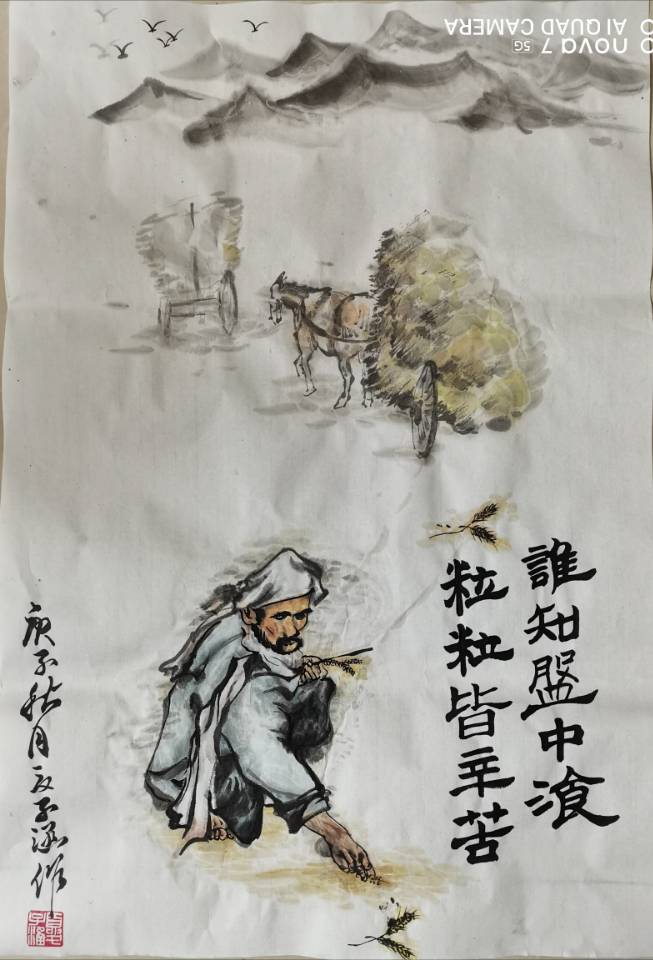 誰知盤中湌
粒粒皆辛苦
庚子秋月夏子涵作
nova 7 5G
AI QUAD CAMERA